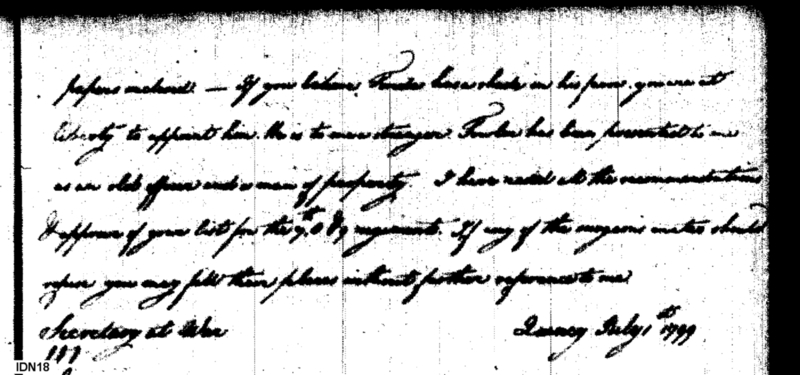 papers inclosed. — If you believe Fowler has a shade in his favor, you are at
liberty to appoint him. He is to me a stranger. Fowler has been presented to me
as an old officer and a man of property. I have read all the recommendations
& approve of your list for the 7th, 8 & 9 regiments. If any of the surgeons mates should
refuse you may fill their places without further reference to me.
Secretary at War
Quincy July 1st 1799
IDN18